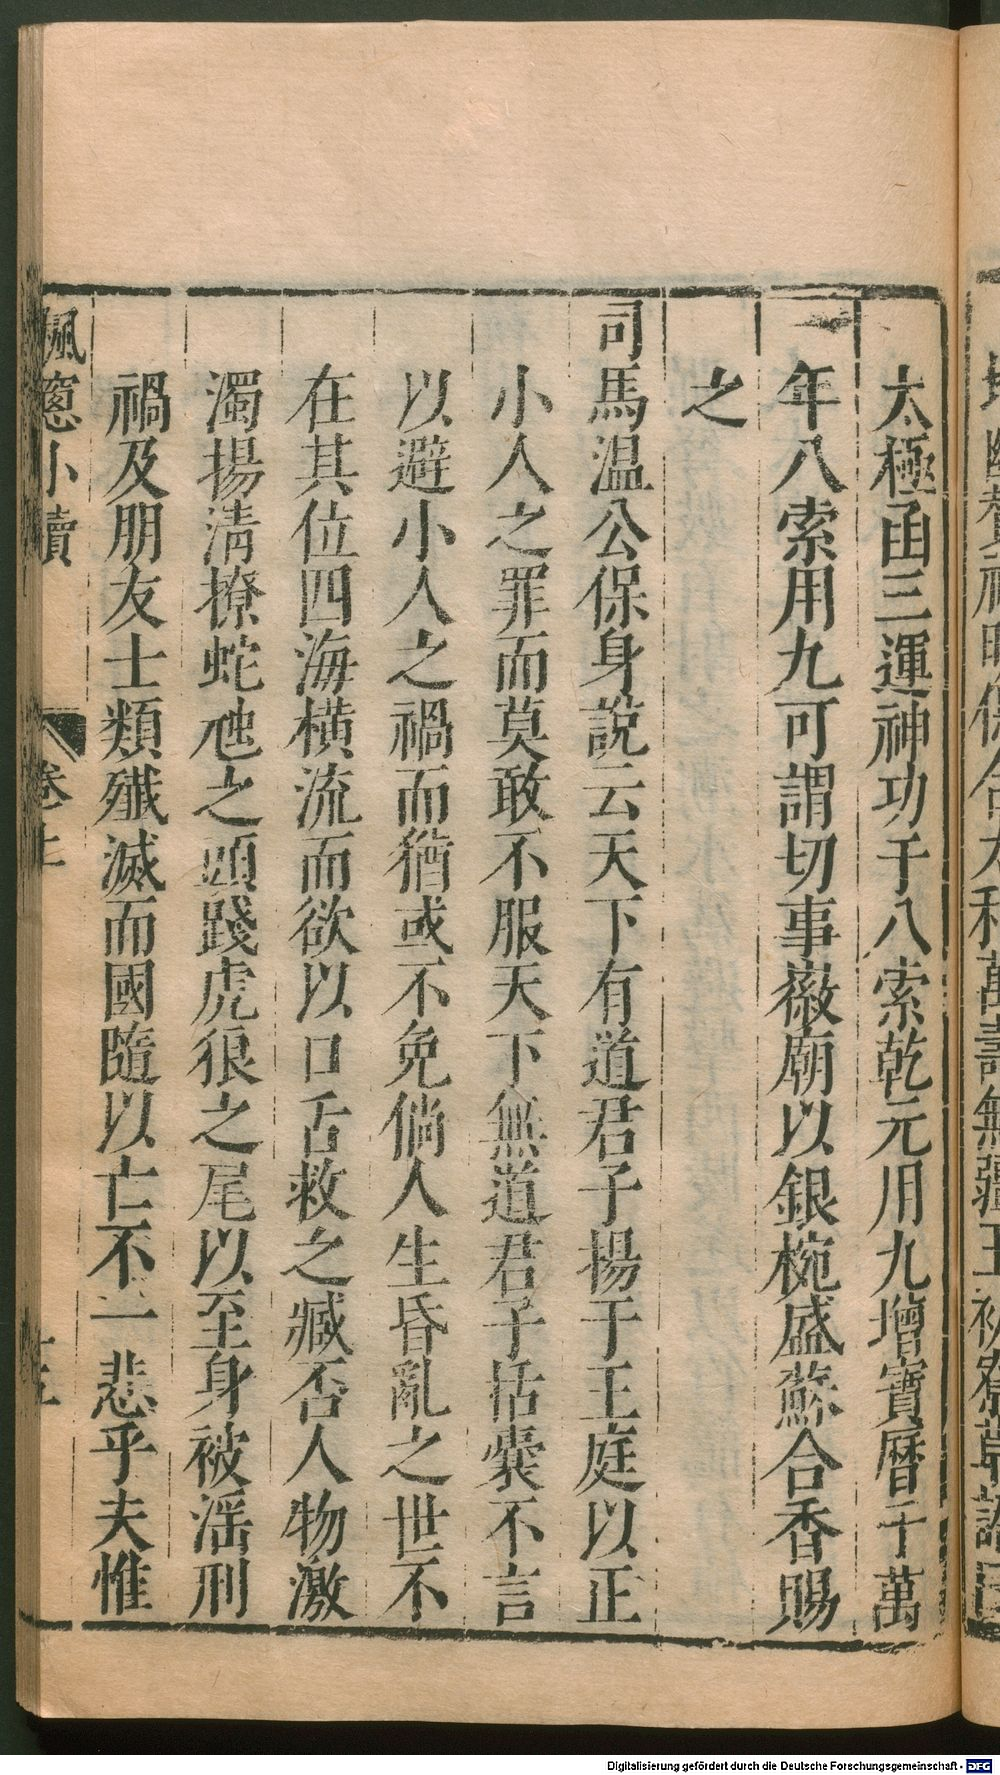 太極函三運神功于八索乾元用九增寶曆千萬
年八索用九可謂切事徽廟以銀椀盛蘇合香賜
之
司馬温公保身說云天下有道君子揚于王庭以正
小人之罪而莫敢不服天下無道君子括囊不言
以避小人之禍而猶或不免倘人生昏亂之世不
在其位四海橫流而欲以口舌救之臧否人物激
濁揚淸撩蛇虺之頭踐虎狼之尾以至身被淫刑
禍及朋友士類殲滅而國隨以亡不一悲乎夫惟
楓窻小牘 卷上 十五
Digitalisierung gefördert durch die Deutsche Forschungsgemeinschaft - DFG